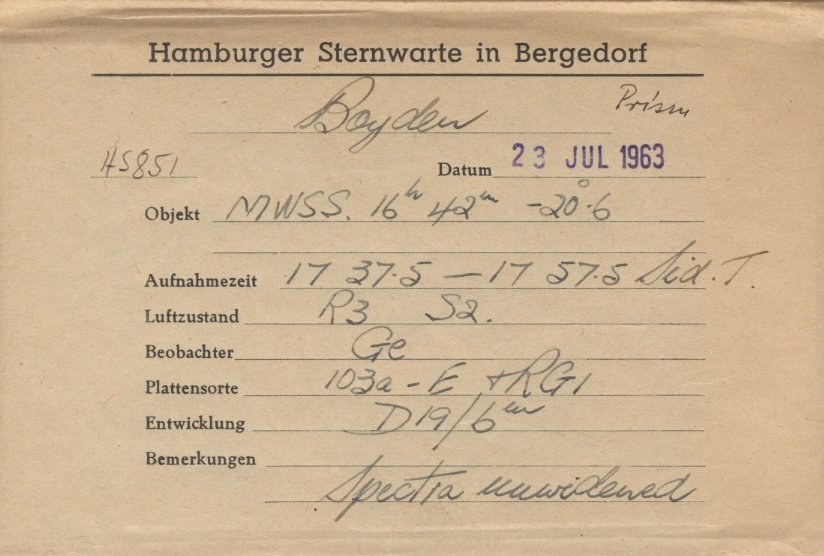 Hamburger Sternwarte in Bergedorf
Prism
Boyden
HS851
Datum 23 JUL 1963
Objekt MWSS. 16h 42m -20°.6
Aufnahmezeit 17 37.5 — 17 57.5 Sid. T.
Luftzustand R3 S2.
Beobachter Ge
Plattensorte 103a-E + RG1
Entwicklung D19/6m
Bemerkungen
Spectra unwidened